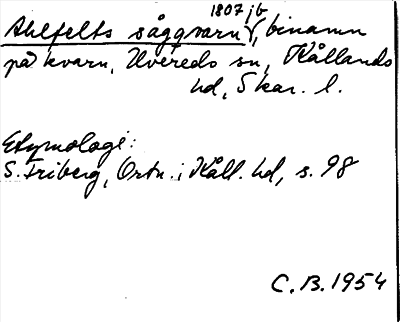 1807 jb
Ahlefelts såggvarn, binamn
på kvarn, Uvereds sn, Kållands
hd, Skar. l.
Etymologi:
S. Friberg, Ortn. i Kåll. hd, s. 98
C.B. 1954